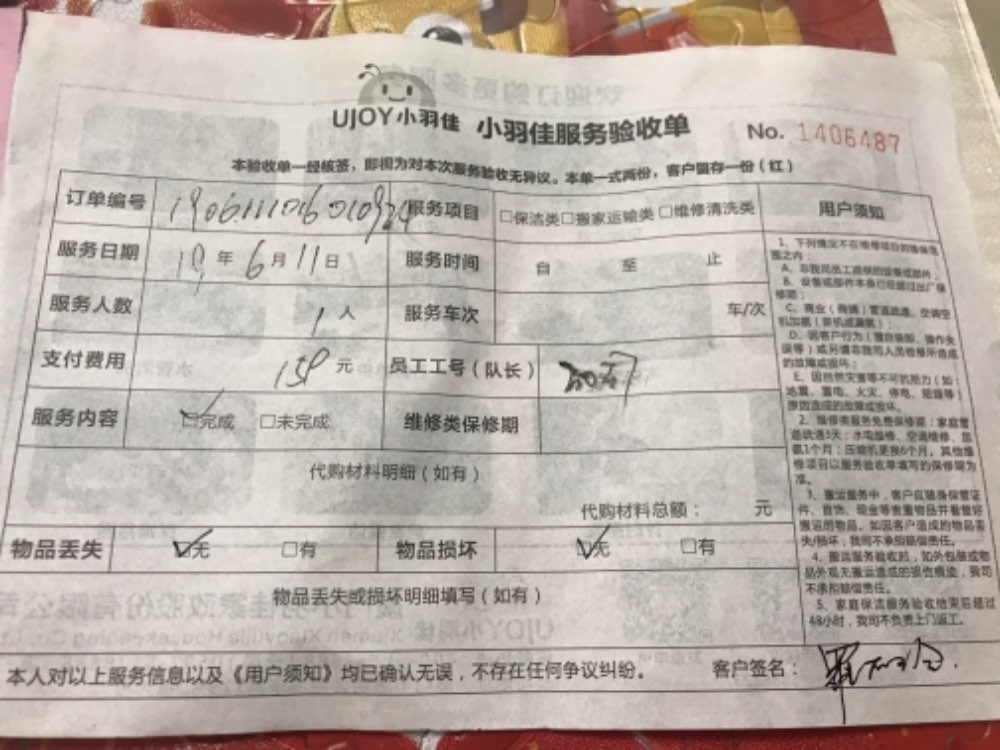 UJOY小羽佳 小羽佳服务验收单 No. 1406487
本验收单一经核签，即视为对本次服务验收无异议。本单一式两份，客户留存一份（红）
订单编号 服务项目 □保洁类□搬家运输类□维修清洗类 用户须知
服务日期 19年6月11日 服务时间 自 至 止
服务人数 1人 服务车次 车/次
支付费用 元 员工工号（队长）
服务内容 □完成 □未完成 维修类保修期
代购材料明细（如有）
代购材料总额： 元
物品丢失 □无 □有 物品损坏 □无 □有
物品丢失或损坏明细填写（如有）
1、下列情况不在维修项目的维保范
围之内：
A、非我司员工提供的设备或部件；
B、设备或部件本身已经超过出厂保
修期；
C、商业（商铺）管道疏通、空调空
机加氨（装机或漏氨）；
D、因客户行为（擅自拆卸、操作失
误等）或另请非我司人员检修所造成
的故障或损坏；
E、因自然灾害等不可抗能力（如：
地震、雷电、火灾、停电、短路等）
原因造成的故障或损坏。
2、维修类服务免费保修期：家庭管
道疏通3天；水电维修、空调维修、加
氨1个月；压缩机更换6个月。其他维
修项目以服务验收单填写的保修期为
准。
3、搬运服务中，客户应随身保管证
件、首饰、现金等贵重物品并看管好
搬运的物品。如因客户造成的物品丢
失/损坏，我司不承担赔偿责任。
4、搬运服务验收时，如外包装或物
品外观无搬运造成的损伤痕迹，我司
不承担赔偿责任。
5、家庭保洁服务验收结束后超过
48小时，我司不负责上门返工。
本人对以上服务信息以及《用户须知》均已确认无误，不存在任何争议纠纷。 客户签名：